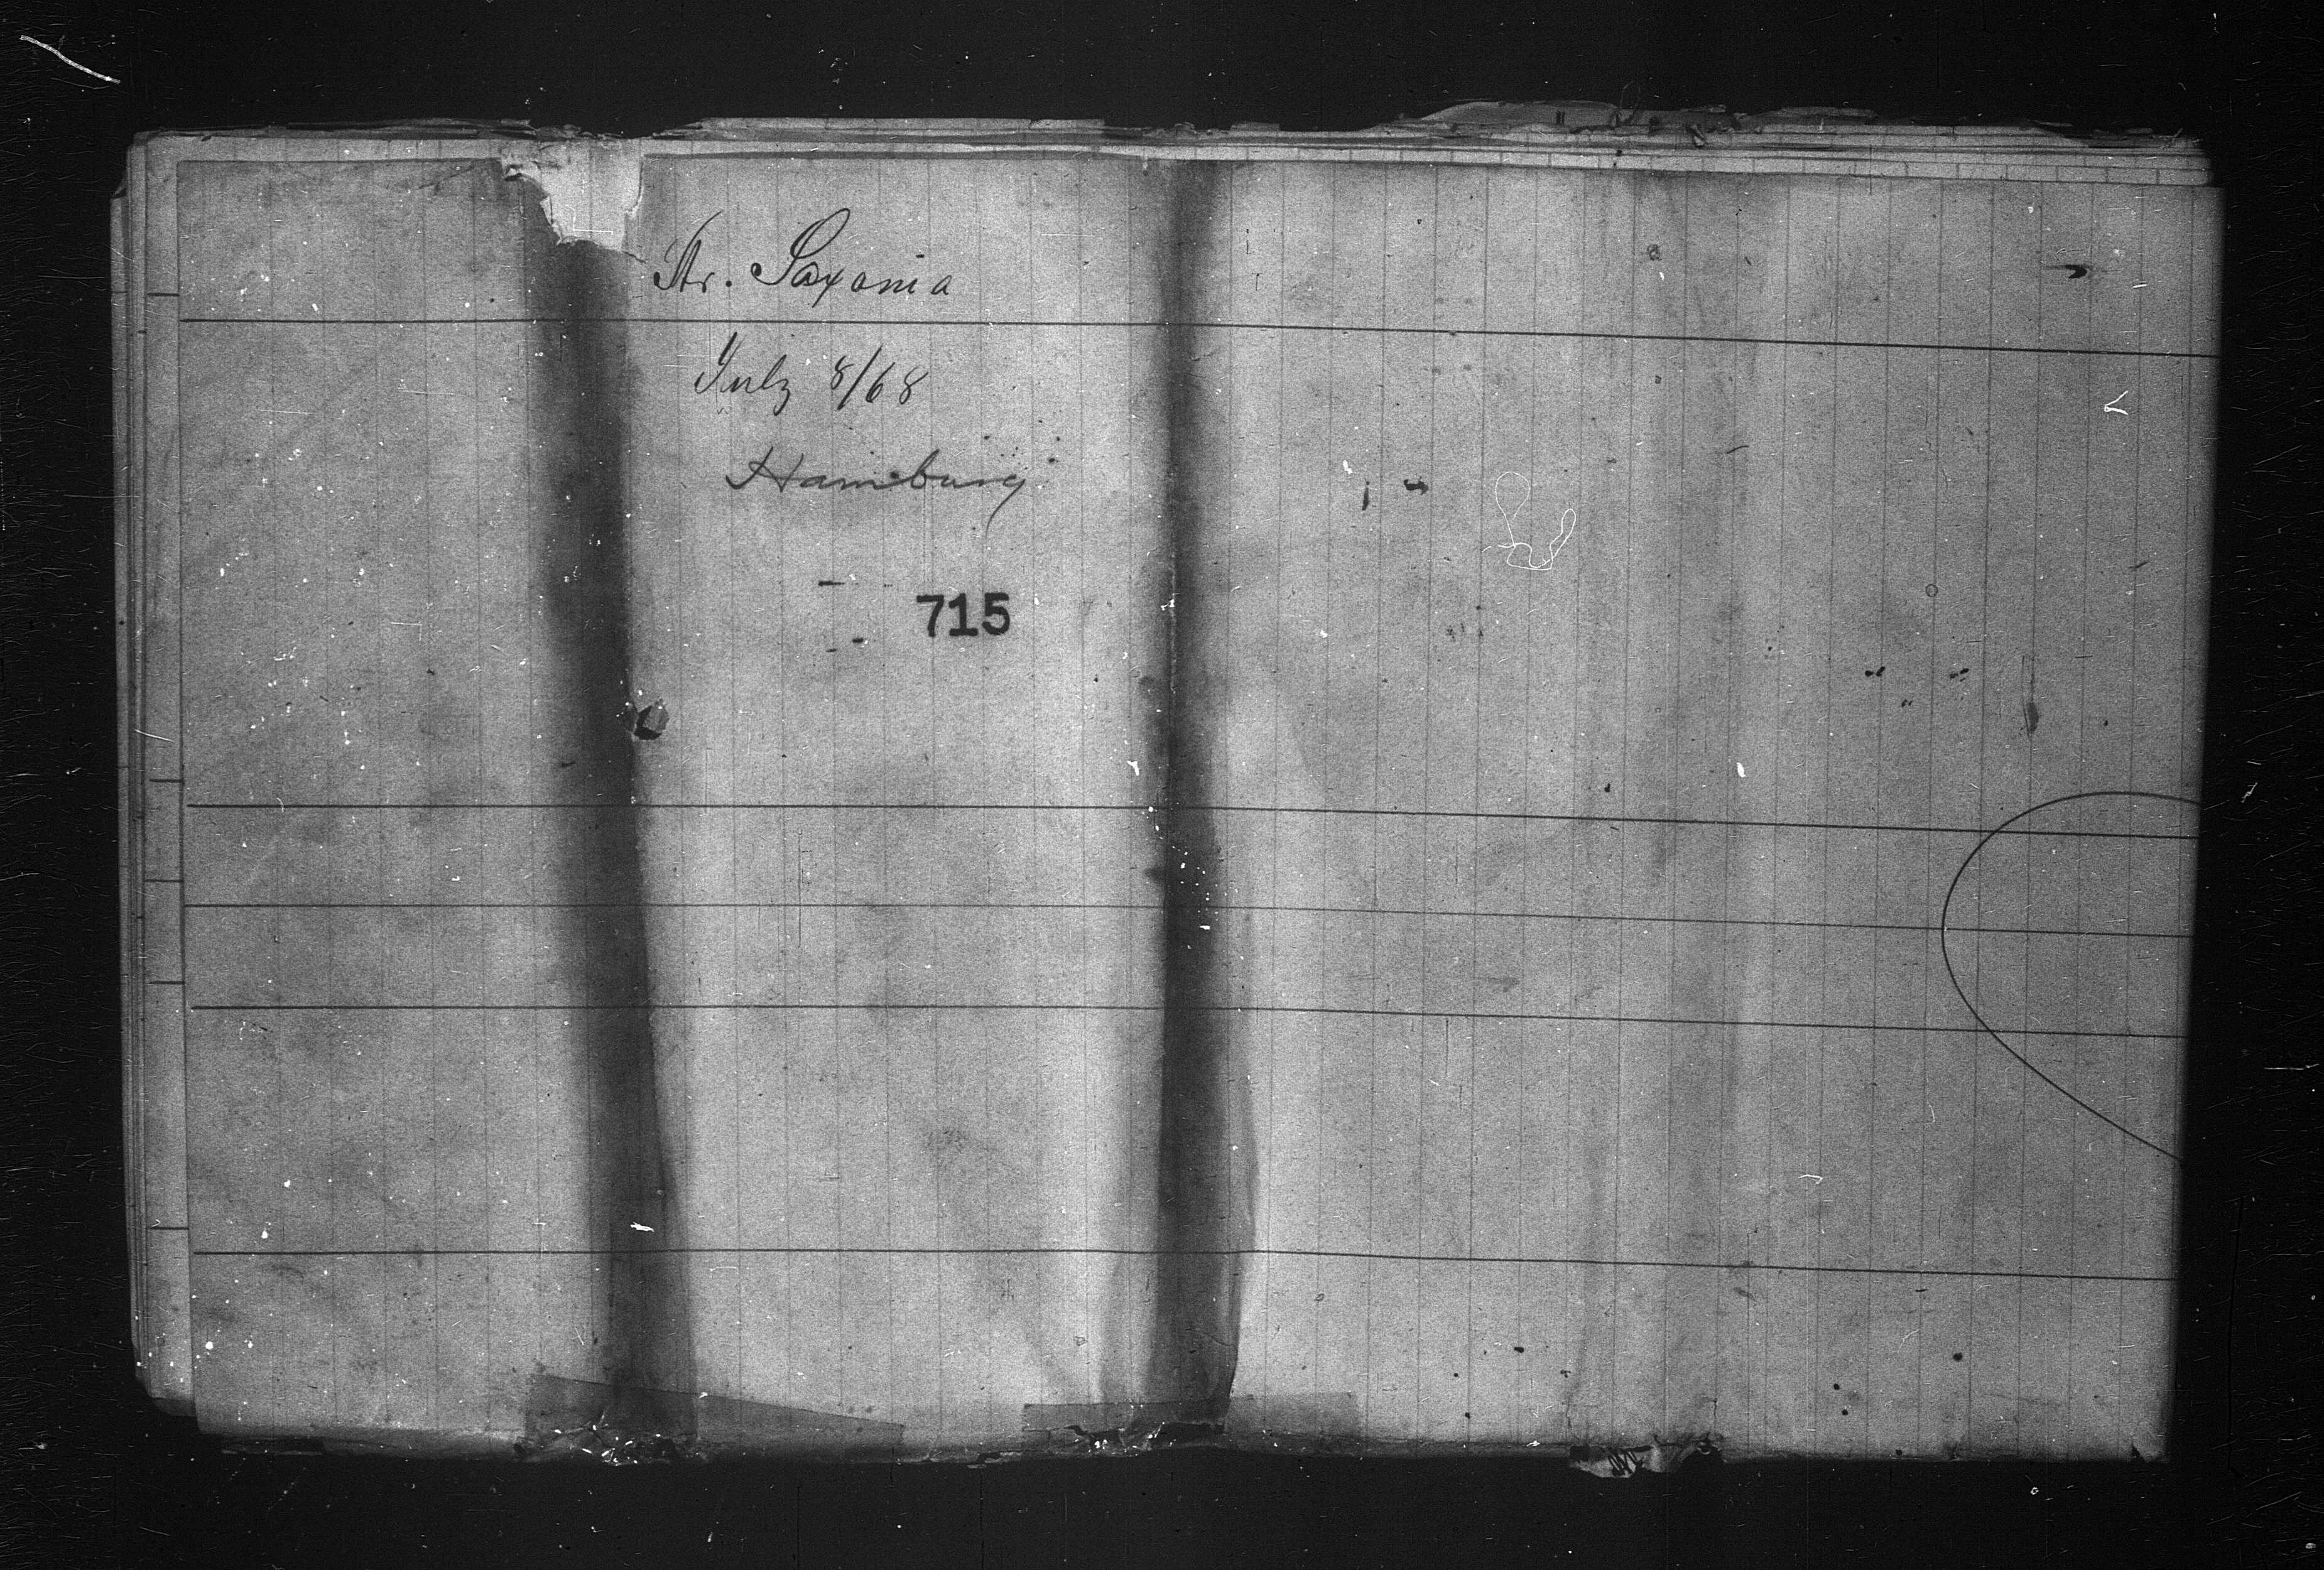 Str. Saxonia
July 8/68
Hamburg
715